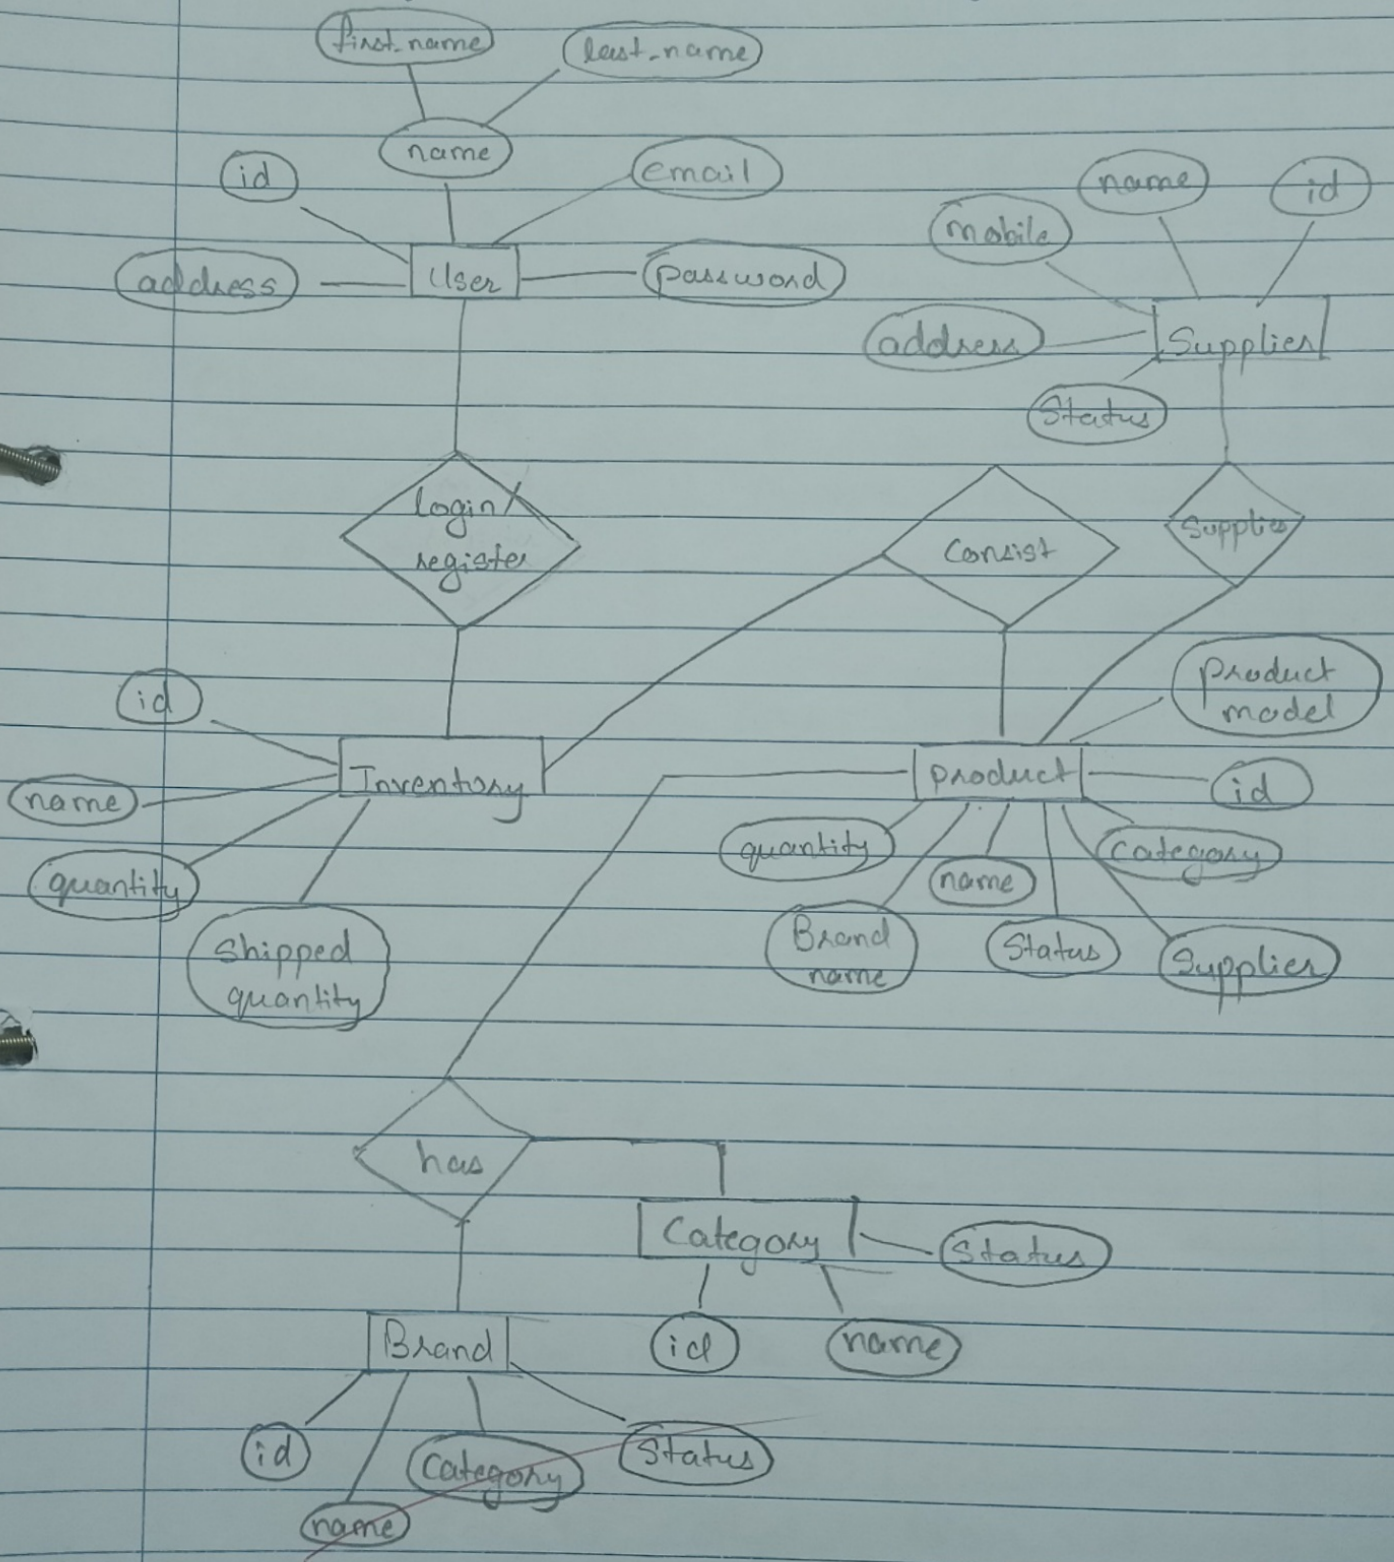 first_name
last_name
name
id
email
address
User
password
name
id
mobile
address
Supplier
Status
login/
register
Consist
Supplies
id
name
Inventory
quantity
Shipped
quantity
product
model
product
id
quantity
name
Category
Brand
name
Status
Supplier
has
Category
Status
id
name
Brand
id
name
Category
Status